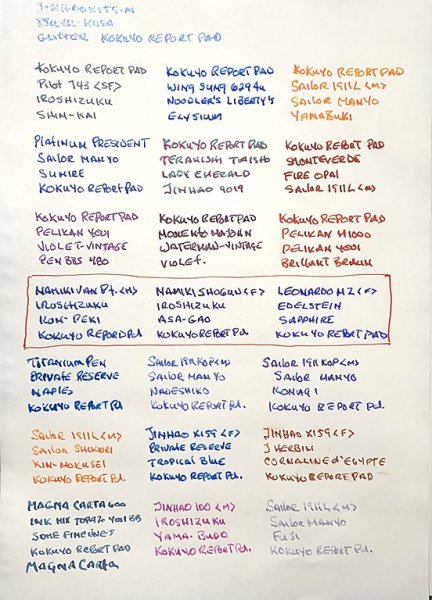 GLITTER KOKUYO REPORT PAD
KOKUYO REPORT PAD
Pilot 743 <SF>
IROSHIZUKU
SHIN-KAI
KOKUYO REPORT PAD
WING SUNG 629
NOODLER'S LIBERTY'S
ELYSIUM
KOKUYO REPORT PAD
SAILOR 1911L <M>
SAILOR MANYO
YAMABUKI
PLATINUM PRESIDENT
SAILOR MANYO
SUMIRE
KOKUYO REPORT PAD
KOKUYO REPORT PAD
TERANISHI
LADY EMERALD
JINHAO 9019
KOKUYO REPORT PAD
MONTEVERDE
FIRE OPAL
SAILOR 1911L <M>
KOKUYO REPORT PAD
PELIKAN 4001
VIOLET-VINTAGE
PEN BBS 480
KOKUYO REPORT PAD
MOMENTO
WATERMAN-VINTAGE
VIOLET.
KOKUYO REPORT PAD
PELIKAN M1000
PELIKAN 4001
BRILLIANT BROWN
NAMIKI VAN Pt. <M>
IROSHIZUKU
KON-PEKI
KOKUYO REPORD Pd.
NAMIKI SHOGUN <F>
IROSHIZUKU
ASA-GAO
KOKUYO REPORT Pd.
LEONARDO MZ <F>
EDELSTEIN
SAPPHIRE
KOKUYO REPORT PAD
TITANIUM PEN
PRIVATE RESERVE
NAPLES
KOKUYO REPORT Pd.
SAILOR 1911 KOP <M>
SAILOR MANYO
NADESHIKO
KOKUYO REPORT Pd.
SAILOR 1911 KOP <M>
SAILOR MANYO
KONAGI
KOKUYO REPORT Pd.
SAILOR 1911L <M>
SAILOR SHIKIORI
KIN-MOKUSEI
KOKUYO REPORT Pd.
JINHAO X159 <F>
PRIVATE RESERVE
TROPICAL BLUE
KOKUYO REPORT Pd.
JINHAO X159 <F>
J HERBIN
CORNALINE d'EGYPTE
KOKUYO REPORE PAD
MAGNA CARTA 600
INK MIX TOPAZ 4001 BB
SOME FINE LINES
KOKUYO REPORT PAD
MAGNA CARTA
JINHAO 100 <M>
IROSHIZUKU
YAMA-BUDO
KOKUYO REPORT Pd.
SAILOR 1911L <M>
SAILOR MANYO
FUJI
KOKUYO REPORT Pd.